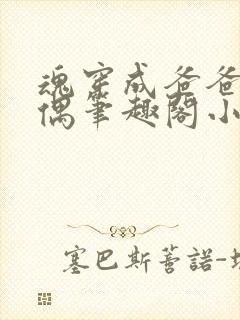 魂穿成爸爸
偶笔趣阁小
塞巴斯蒂諾-塔